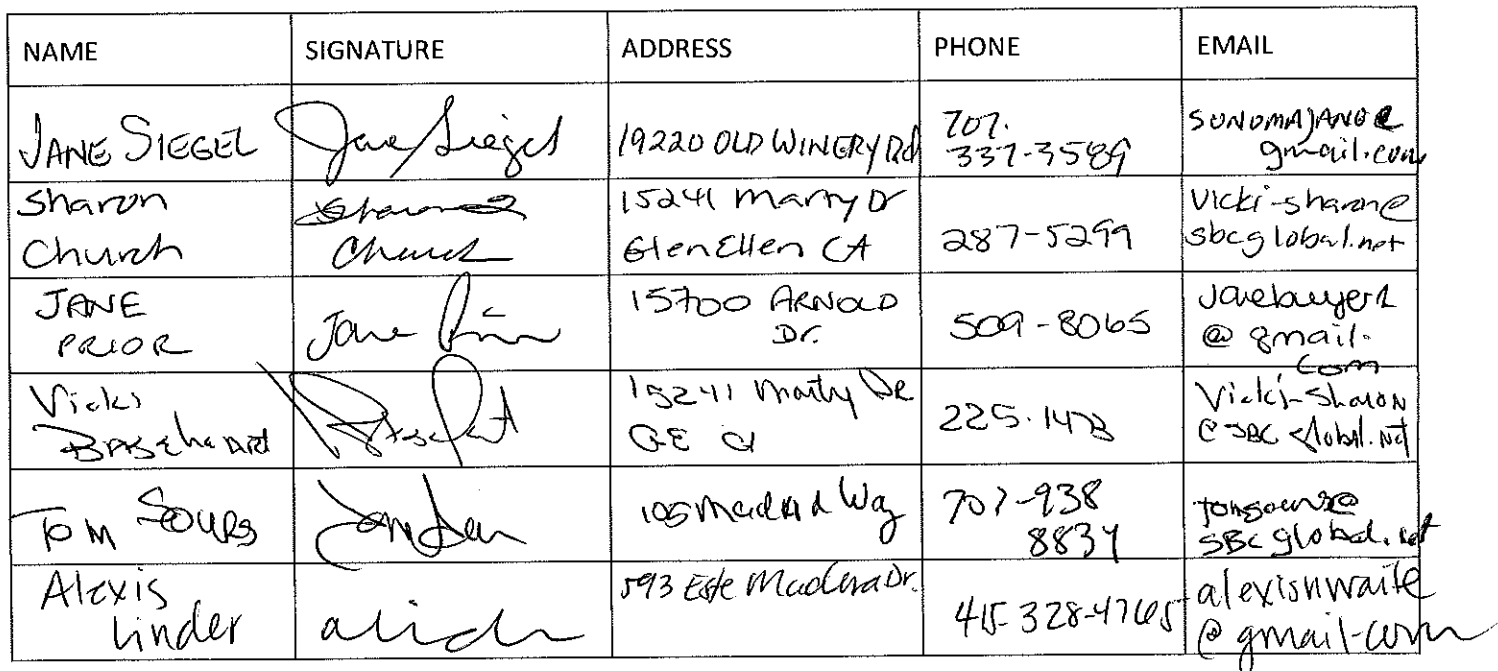 NAME SIGNATURE ADDRESS PHONE EMAIL
JANE SIEGEL Jane Siegel 19220 OLD WINERY Rd 707. 337-3589 SONOMAJANE@ gmail.com
Sharon Church Sharon Church 15241 Marty Dr Glen Ellen CA 287-5299 Vicki-sharon@ sbcglobal.net
JANE PRIOR Jane Prior 15700 ARNOLD Dr. 509-8065 @ gmail. com
Vicki 15241 Marty DR GE CA 225. Vicki-Sharon @ SBC global. Net
Tom SOURS 105 Madrid Way 707-938 8834 tomsours@ SBCglobal.net
Alexis Linder 593 Este Madera Dr. 415-328-4765 alexisnwaite @ gmail.com